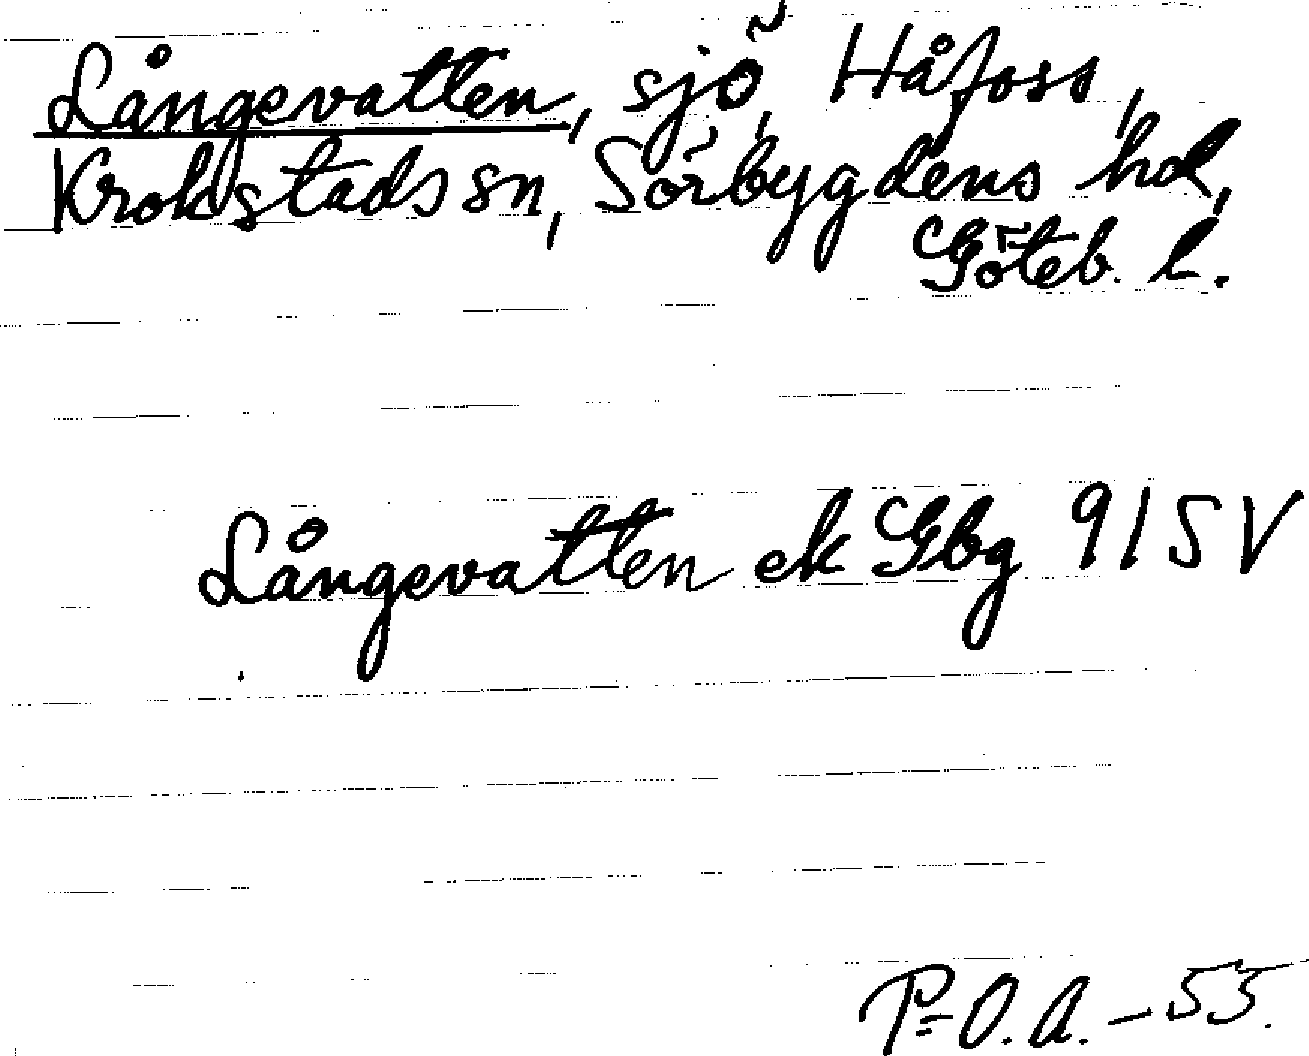 Långevatten, sjö, Håfoss,
Krokstads sn, Sörbygdens hd,
Göteb. l.
Långevatten ek Gbg 91 SV
P=O.A. - 55.